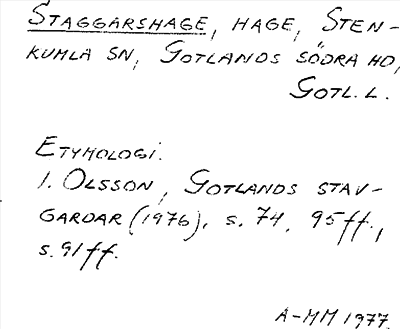 STAGGARSHAGE, HAGE, STEN-
KUMLA SN, GOTLANDS SÖDRA HD,
GOTL. L.
ETYMOLOGI.
I. OLSSON, GOTLANDS STAV-
GARDAR (1976), s. 74, 95 ff.,
s. 91 ff.
A-MM 1977.